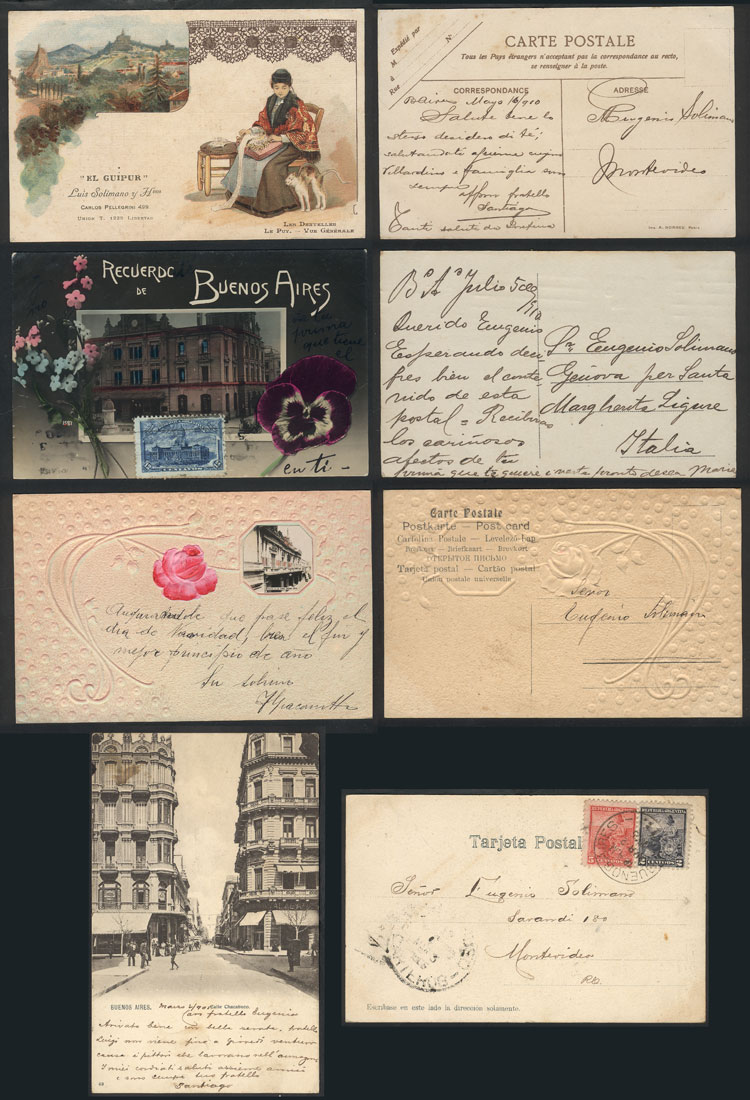 "EL GUIPUR"
Luis Solimano y Hnos
CARLOS PELLEGRINI 499
UNION T. 1220 LIBERTAD
LES DENTELLES
LE PUY. – VUE GÉNÉRALE
Expédié par
M N°
Rue
à
CARTE POSTALE
Tous les Pays étrangers n'acceptant pas la correspondance au recto,
se renseigner à la poste.
CORRESPONDANCE
ADRESSE
BAires Mayo 16/910
Salute bene lo
stesso desidero di té
salutandoti assieme
famiglia
sempre
fratello
Santiago
Tanti saluti da
Eugenio Solimano
Montevideo
RECUERDO
DE
BUENOS AIRES
de la
prima
que tiene
él
en ti -
CENTAVOS
Bs As Julio 5 de
1910
Querido Eugenio
Esperando desci
fres bien el conte
nido de esta
postal = Recibiras
los cariñosos
afectos de tu
prima que te quiere
Maria
Sr Eugenio Solimano
Génova per Santa
Margherita Ligure
Italia
que pase feliz el
dia de Navidad, buen el fin y
mejor principio de año
Su sobrino
Carte Postale
Postkarte — Post card
Cartolina Postale — Levelező-Lap
Briefkaart — Brevkort
ОТКРЫТОЕ ПИСЬМО
Tarjeta postal — Cartão postal
Union postale universelle
Señor
Eugenio Solimano
BUENOS AIRES.
Calle Chacabuco.
Caro fratello Eugenio
Arrivato bene con bella serata, fratello
Luigi non viene fino a giovedi
causa i pittori che lavorano nell'
cordiali saluti assieme amici
e sono sempre tuo fratello
Santiago
Tarjeta Postal
5 CENTAVOS
2 CENTAVOS
BUENOS AIRES
Señor Eugenio Solimano
Sarandi 180
Montevideo
Escríbase en este lado la dirección solamente.